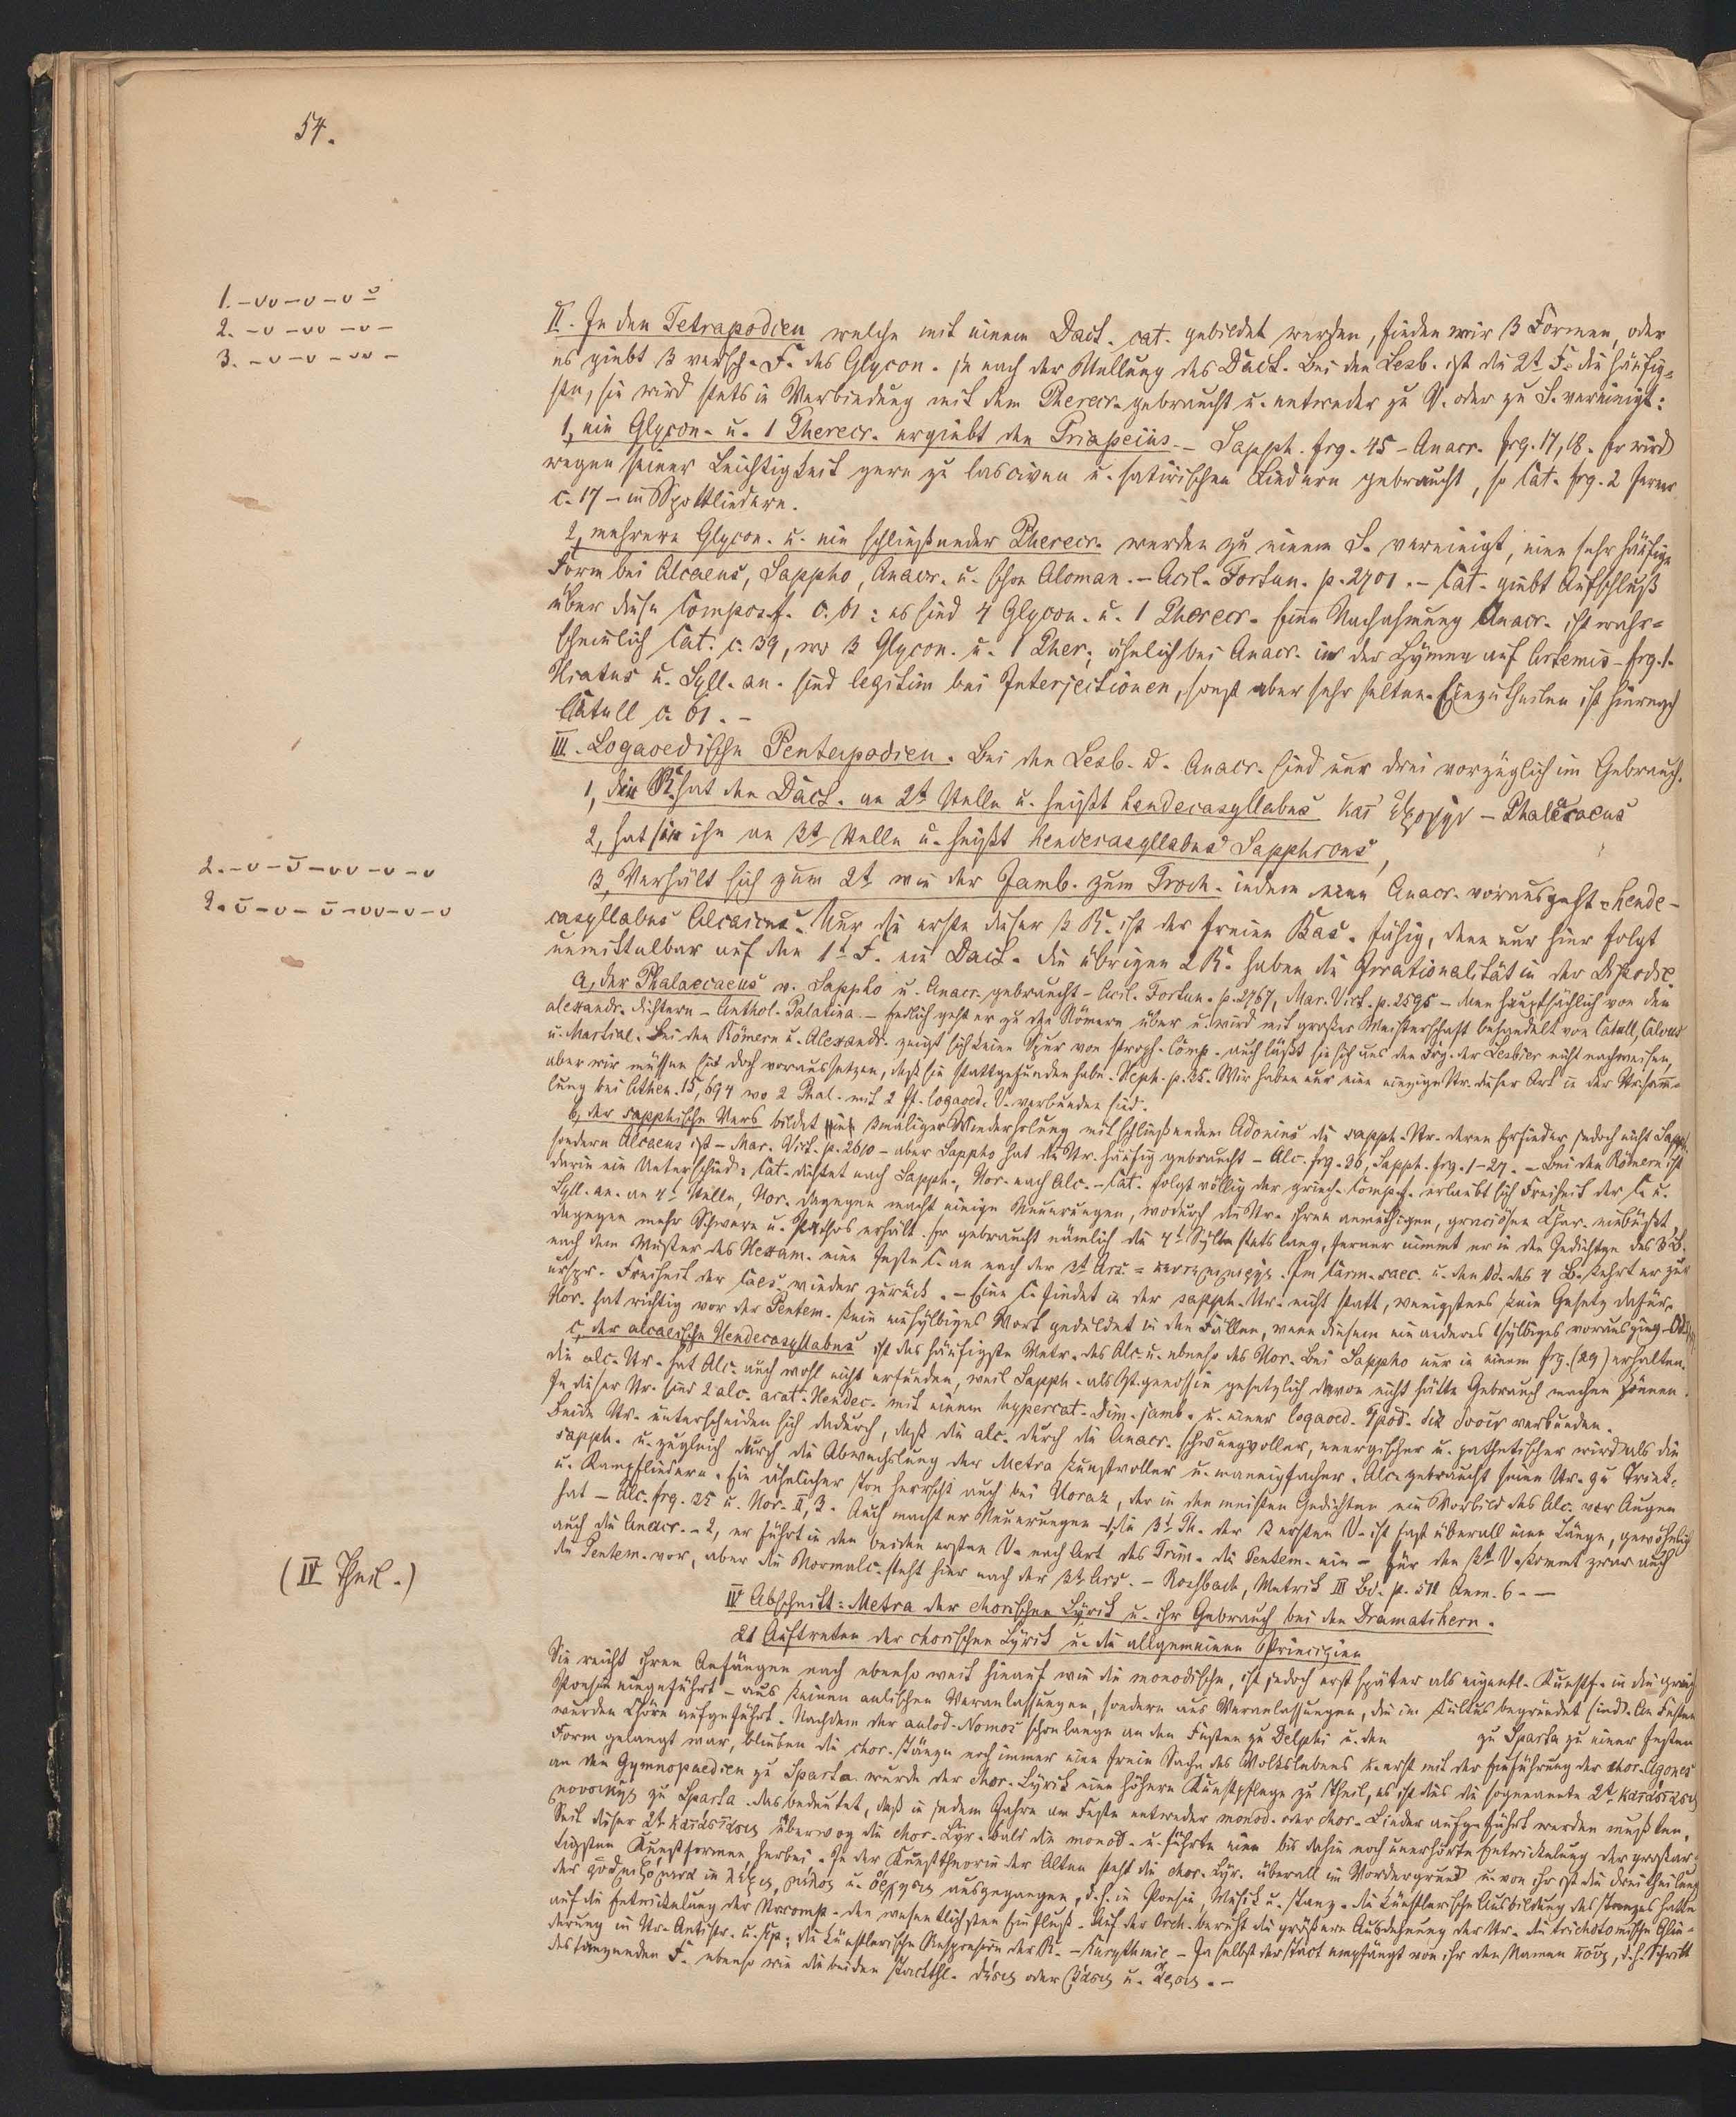 54.
1. – ᴗᴗ – ᴗ – ᴗ ᴗ̲
2. – ᴗ – ᴗᴗ – ᴗ –
3. – ᴗ – ᴗ – ᴗᴗ –
II. In den Tetrapodien welche mit einem Dact. cat. gebildet werden, finden wir 3 Formen, oder
es giebt 3 versch. F. des Glycon. je nach der Stellung des Dact. Bei den Lesb. ist die 2t. F. die häufig-
ste, sie wird stets in Verbindung mit dem Pherecr. gebraucht u. entweder zu V. oder zu S. vereinigt:
1, ein Glycon. u. 1 Pherecr. ergiebt den Priapeius – Sapph. frg. 45 – Anacr. frg. 17, 18. Er wird
wegen seiner Leichtigkeit gern zu lasciven u. satirischen Liedern gebraucht, so Cat. frg. 2 ferner
c. 17 – in Spottliedern.
2, mehrere Glycon. u. ein schließender Pherecr. werden zu einem S. vereinigt, eine sehr häufige
Form bei Alcaeus, Sappho, Anacr. u. schon Alcman. – Acil. Fortun. p. 2701. – Cat. giebt Aufschluß
über diese Compos. c. 61: es sind 4 Glycon. u. 1 Pherecr. Eine Nachahmung Anacr. ist wahr-
scheinlich Cat. c. 34, wo 3 Glycon. u. 1 Pher; ähnlich bei Anacr. in der Hymne auf Artemis – frg. 1.
Hiatus u. Syll. an. sind legitim bei Interjectionen, sonst aber sehr selten. Einzutheilen ist hiernach
Catull c. 61. –
III. Logaoedische Pentapodien. Bei den Lesb. u. Anacr. sind nur drei vorzüglich im Gebrauch.
1, die R. hat den Dact. an 2t Stelle u. heißt hendecasyllabus κατ' ἐξοχήν – Phalaecaeus
2, hat sie ihn an 3t Stelle u. heißt hendecasyllabus Sapphicus,
2. – ᴗ – ᴗ̄ – ᴗᴗ – ᴗ – ᴗ
3, Verhält sich zum 2t wie der Jamb. zum Troch. indem eine Anacr. vorausgeht – hende-
3. ᴗ̄ – ᴗ – ᴗ̄ – ᴗᴗ – ᴗ – ᴗ
casyllabus Alcaicus. Nur die erste dieser 3 R. ist der freien Bas. fähig, denn nur hier folgt
unmittelbar auf den 1t F. ein Dact. Die übrigen 2 R. haben die Irrationalität in der Dipodie.
a, der Phalaecaeus v. Sappho u. Anacr. gebraucht – Acil. Fortun. p. 2767, Mar. Vict. p. 2595 – dann hauptsächlich von den
alexandr. Dichtern – Anthol. Palatina. – Endlich geht er zu den Römern über u. wird mit großer Meisterschaft behandelt von Catull, Calvus
u. Martial. Bei den Römern u. Alexandr. zeigt sich keine Spur von stroph. Comp. auch läßt sie sich aus den Frg. der Lesbier nicht nachweisen,
aber wir müssen sie doch voraussetzen, daß sie stattgefunden habe. Heph. p. 35. Wir haben nur eine einzige Str. dieser Art in der
lung bei Athen. 15, 694 wo 2 Phal. mit 2 logaoed. V. verbunden sind.
b, der sapphische Vers bildet 3maliger Wiederholung mit schließendem Adonius die sapph. Str. deren Erfinder jedoch nicht Sapph.
sondern Alcaeus ist – Mar. Vict. p. 2610 – aber Sappho hat die Str. häufig gebraucht – Alc. frg. 36, Sapph. frg. 1–27. – Bei den Römern ist
darin ein Unterschied: Cat. dichtet nach Sapph., Hor. nach Alc. – Cat. folgt völlig der griech. Comp. erlaubt sich Freiheit der C. u.
Syll. an. an 4t Stelle, Hor. dagegen macht einige Neuerungen, wodurch die Str. ihren anmuthigen, graciösen Char. einbüßt,
dagegen mehr Schwere u. Pathos erhält. Er gebraucht nämlich die 4t Sylbe stets lang, ferner nimmt er in den Gedichten des 3 B.
nach dem Muster des Hexam. eine feste C. an nach der 3t Ars. = πενθημιμερής. Im Carm. saec. u. den Od. des 4 B. kehrt er zur
urspr. Freiheit der Caes. wieder zurück. – Eine C. findet in der sapph. Str. nicht statt, wenigstens kein Gesetz dafür.
Hor. hat richtig vor der Pentem. kein einsylbiges Wort geduldet in den Fällen, wenn diesem ein anderes 1sylbiges vorausging.
c, der alcaeische Hendecasyllabus ist das häufigste Metr. des Alc. u. ebenso des Hor. Bei Sappho nur in einem frg. (29) erhalten.
Die alc. Str. hat Alc. auch wohl nicht erfunden, weil Sapph. als gesetzlich davon nicht hätte Gebrauch machen können.
In dieser Str. sind 2 alc. acat. Hendec. mit einem hypercat. Dim. jamb. u. einer logaoed. verbunden.
Beide Str. unterscheiden sich dadurch, daß die alc. durch die Anacr. schwungvoller, energischer u. pathetischer wird als die
sapph. u. zugleich durch die Abwechslung der Metra kunstvoller u. mannigfacher. Alc. gebraucht seine Str. zu Trink-
u. Kampfliedern. Ein ähnlicher Ton herrscht auch bei Horaz, der in den meisten Gedichten ein Vorbild des Alc. vor Augen
hat – Alc. frg. 25 u. Hor. II, 3. Auch macht er Neuerungen – 1, die 3t Th. der 2 ersten V. ist fast überall eine Länge, gewöhnlich
auch die Anacr. – 2, er führt in den beiden ersten V. nach Art des Trim. die Pentem. ein – Für den 3t V. kommt zwar auch
die Pentem. vor, aber die Normalc. steht hier nach der 3t Ars. – Rossbach, Metrik III Bd. p. 511 Anm. 6. –
(IV Theil.)
IV Abschnitt: Metra der chorischen Lyrik u. ihr Gebrauch bei den Dramatikern.
Auftreten der chorischen Lyrik u. die allgemeinen Principien
Sie reicht ihren Anfängen nach ebenso weit hinauf wie die monodische, ist jedoch erst später als eigentl. Kunstf. in die griech.
Poesie eingeführt – aus keinen Veranlassungen, sondern aus Veranlassungen, die im Kultus begründet sind. An Festen
wurden Chöre aufgeführt. Nachdem der aulod. Nomos schon lange an den Festen zu Delphi u. den zu Sparta zu einer festen
Form gelangt war, blieben die chor. Tänze noch immer eine freie Sache des Volkslebens u. erst mit der Einführung der chor. Agones
an den Gymnopaedien zu Sparta wurde der chor. Lyrik eine höhere Kunstpflege zu Theil, es ist dies die sogenannte 2t κατάστασις
μουσικῆς zu Sparta. das bedeutet, daß in jedem Jahre am Feste entweder monod. oder chor. Lieder aufgeführt werden mußten.
Seit dieser 2t κατάστασις überwog die chor. Lyr. bald die monod. u. führte eine bis dahin noch unerhörte Entwickelung der großar-
tigsten Kunstformen herbei. In der Kunsttheorie der Alten steht die chor. Lyr. überall im Vordergrund u. von ihr ist die Dreitheilung
der in λέξις, μέλος u. ὄρχησις ausgegangen, d. h. in Poesie, Musik u. Tanz. Die künstlerische Ausbildung des Tanzes hatte
auf die Entwickelung der Strcomp. den wesentlichsten Einfluß. Auf der Orch. beruht die größere Ausdehnung der Str. die trichotomische Glie-
derung in Str. Antistr. u. Ep.; die künstlerische der R. – Eurythmie – Ja selbst der Tact empfängt von ihr den Namen πούς, d. h. Schritt
des tanzenden F. ebenso wie die beiden Tactthl. θέσις oder βάσις u. ἄρσις. –